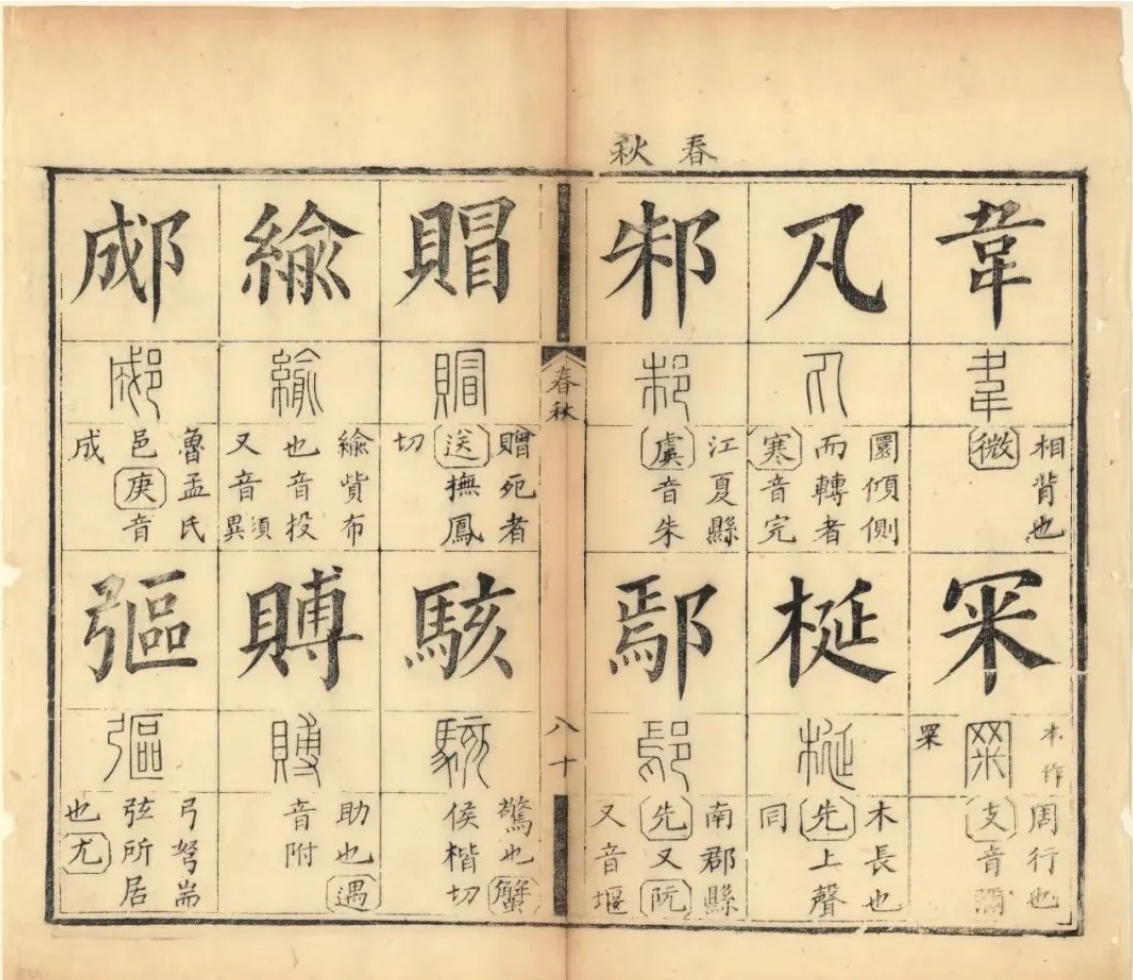 春秋
韋
韋
相背也
微
冞
冞
本作
罙
周行也
支音彌
丸
丸
圜傾側
而轉者
寒音完
梴
梴
木長也
先上聲
同
邾
邾
江夏縣
虞音朱
鄢
鄢
南郡縣
先又阮
又音堰
春秋
八十
賵
賵
贈死者
送撫鳳
切
駭
駭
驚也蟹
侯楷切
緰
緰
緰貲布
也音投
又音須異
賻
賻
助也遇
音附
郕
郕
魯孟氏
邑庚音
成
彄
彄
弓弩耑
弦所居
也尤